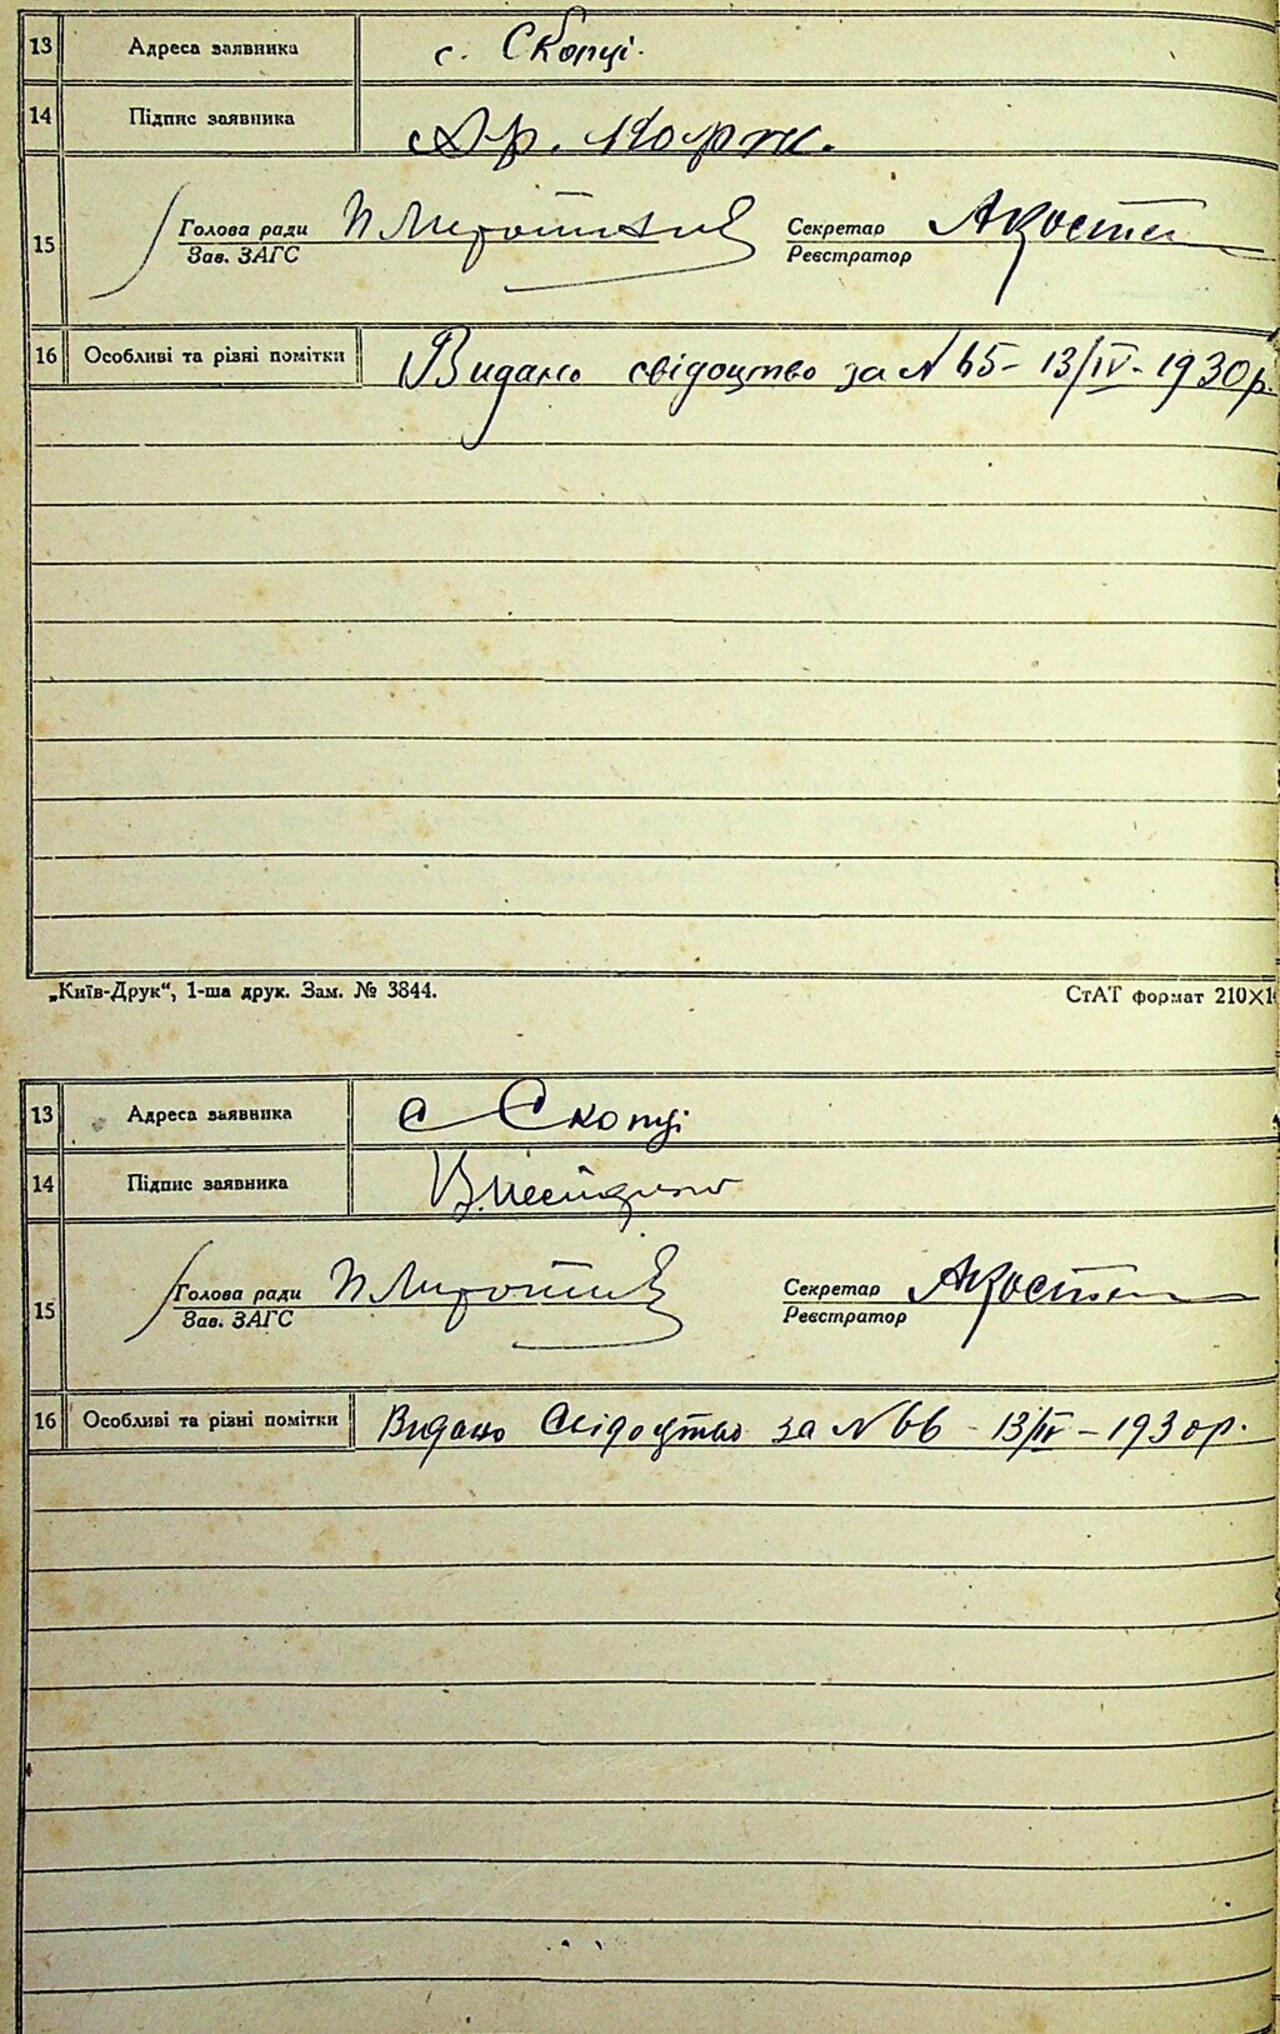 13 Адреса заявника с. Скопці.
14 Підпис заявника
15 Голова ради Секретар
Зав. ЗАГС Реєстратор
16 Особливі та різні помітки Видано свідоцтво за N 65 - 13/IV - 1930 р.
„Київ-Друк“, 1-ша друк. Зам. № 3844. СтАТ формат 210×1
13 Адреса заявника с Скопці
14 Підпис заявника
15 Голова ради Секретар
Зав. ЗАГС Реєстратор
16 Особливі та різні помітки Видано Свідоцтво за N 66 - 13/IV - 1930 р.